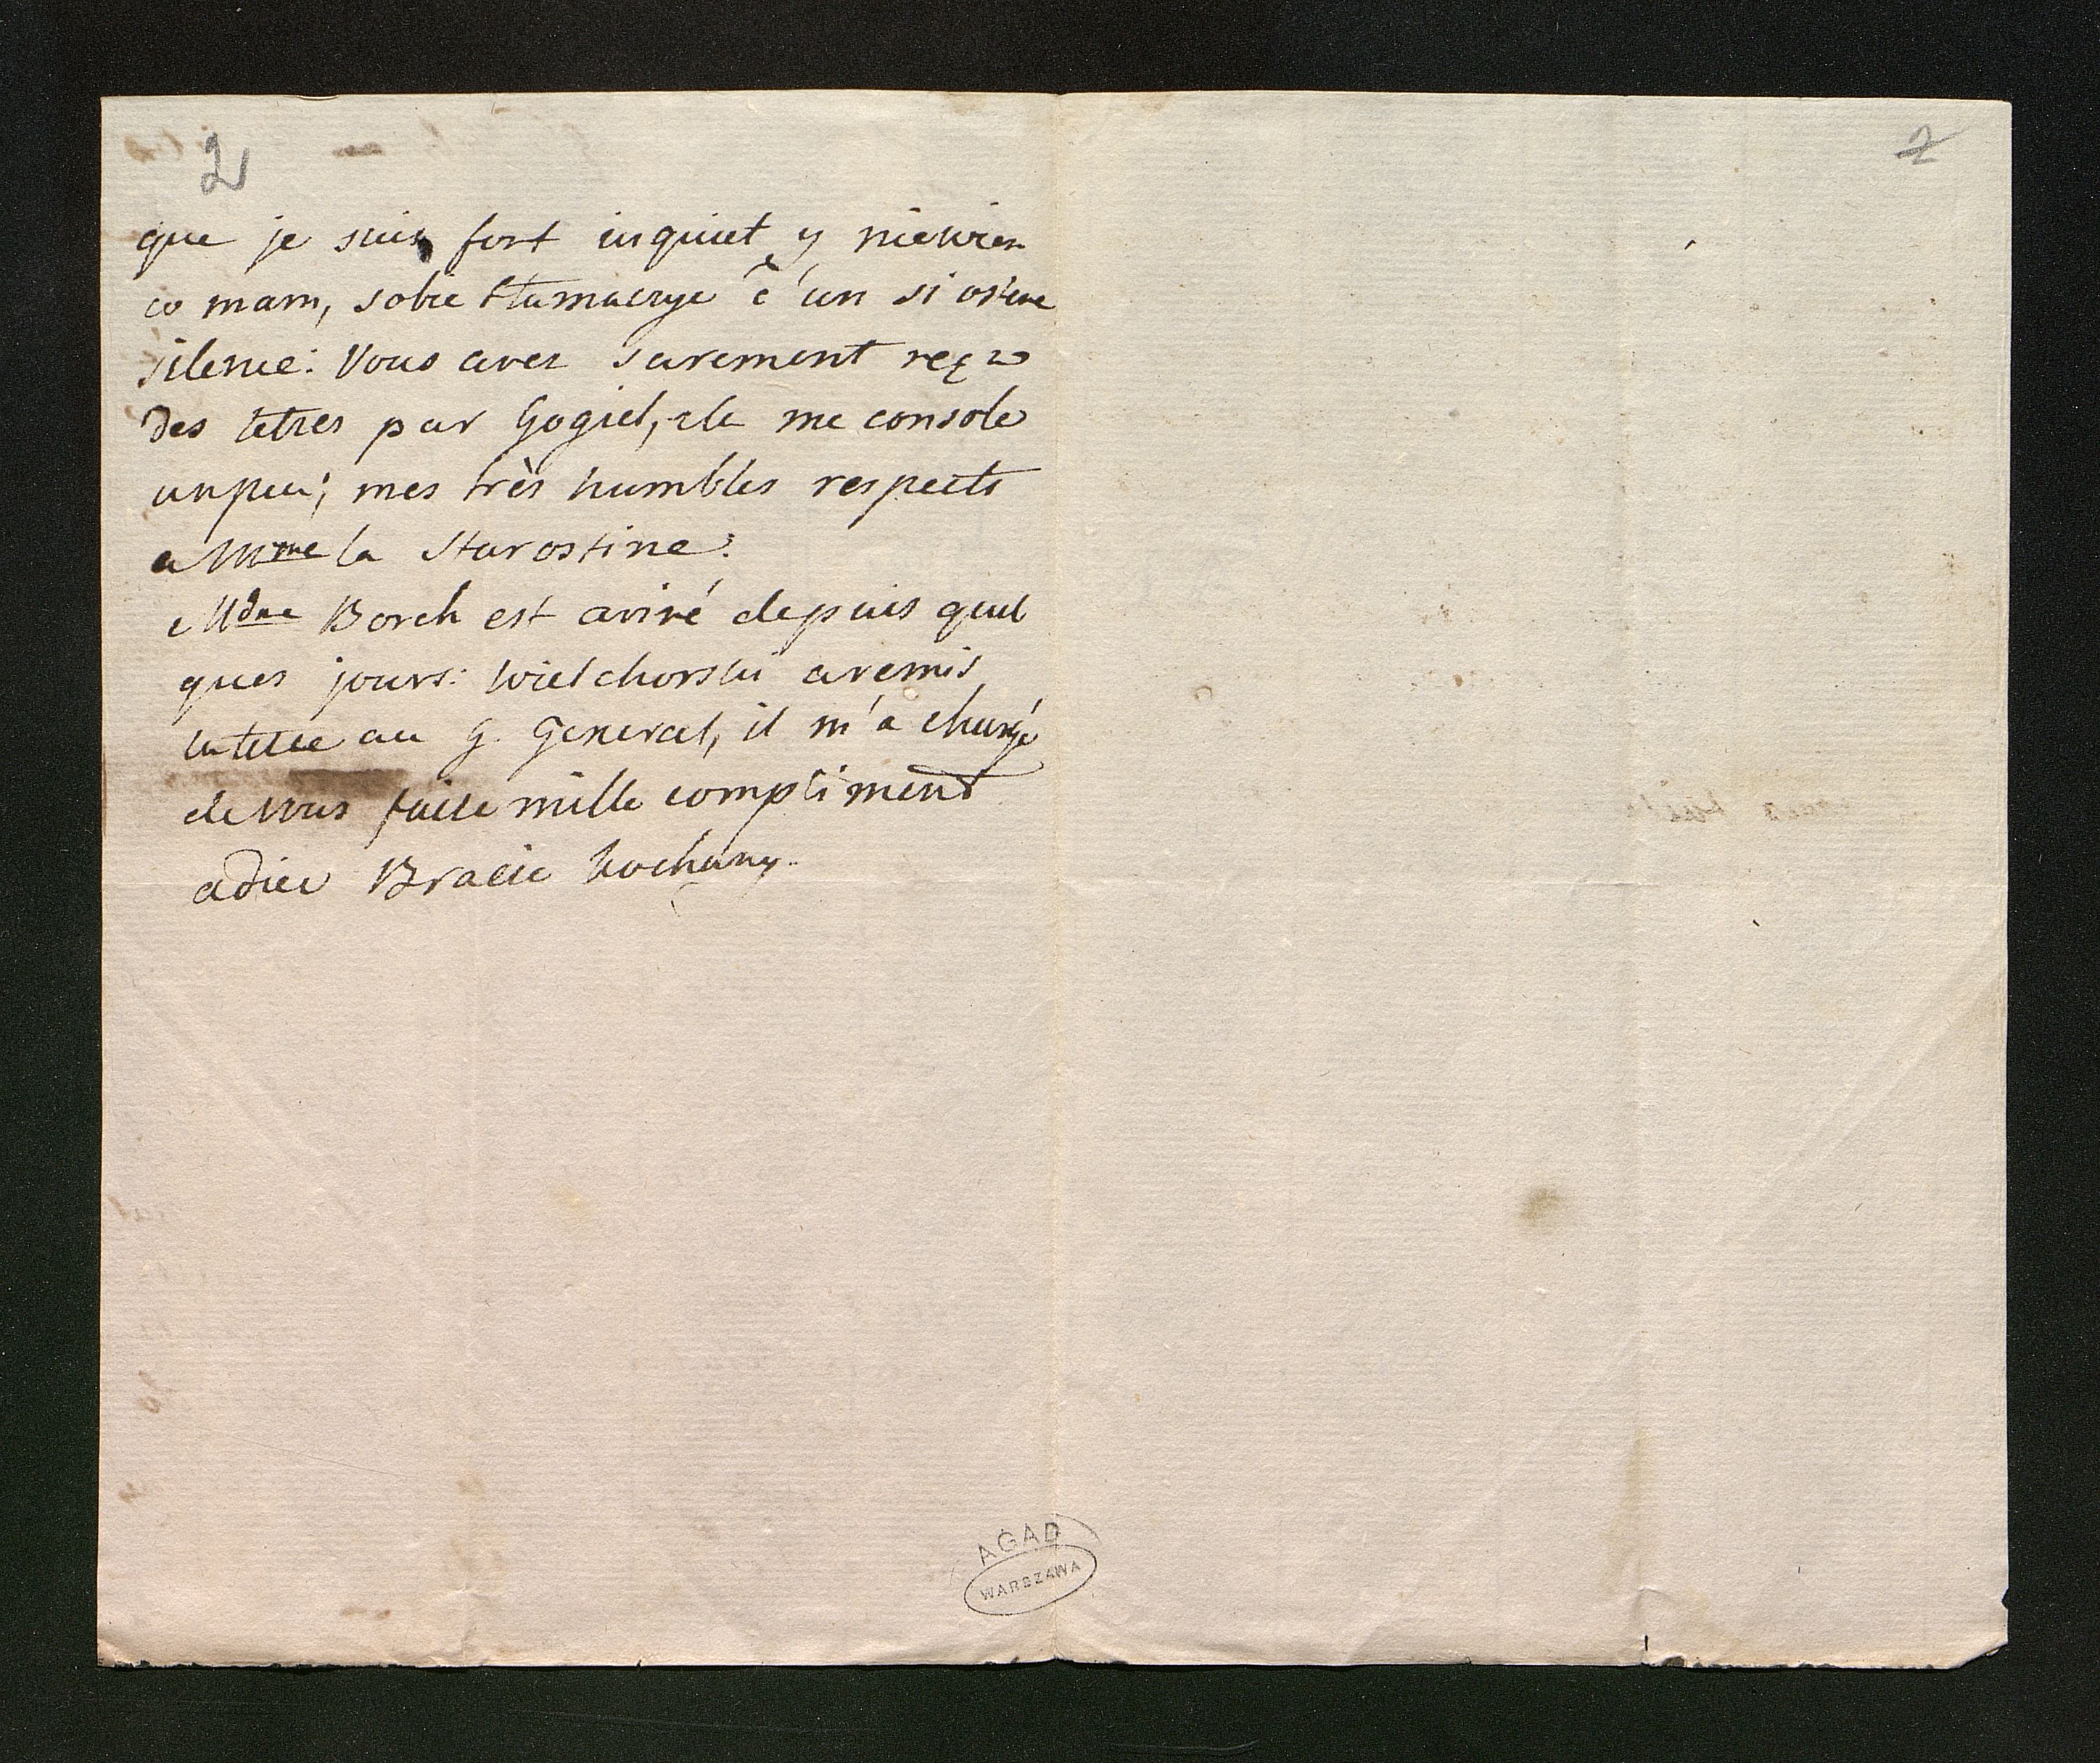 2
que je suis fort inquiet y niewiem
co mam, sobie tlumaczyc c'un si ostere
silence: Vous aves surement reçu
des letres par Gogiel, cela me console
unpeu; mes très humbles respects
a Mme la Starostine:
Mdme Borch est arivé depuis quel
ques jours: Wielchorski aremis
laletre au G. General, il m'a chargé
de vous faire mille compliment
adieu Bracie kochany.
2
AGAD
WARSZAWA